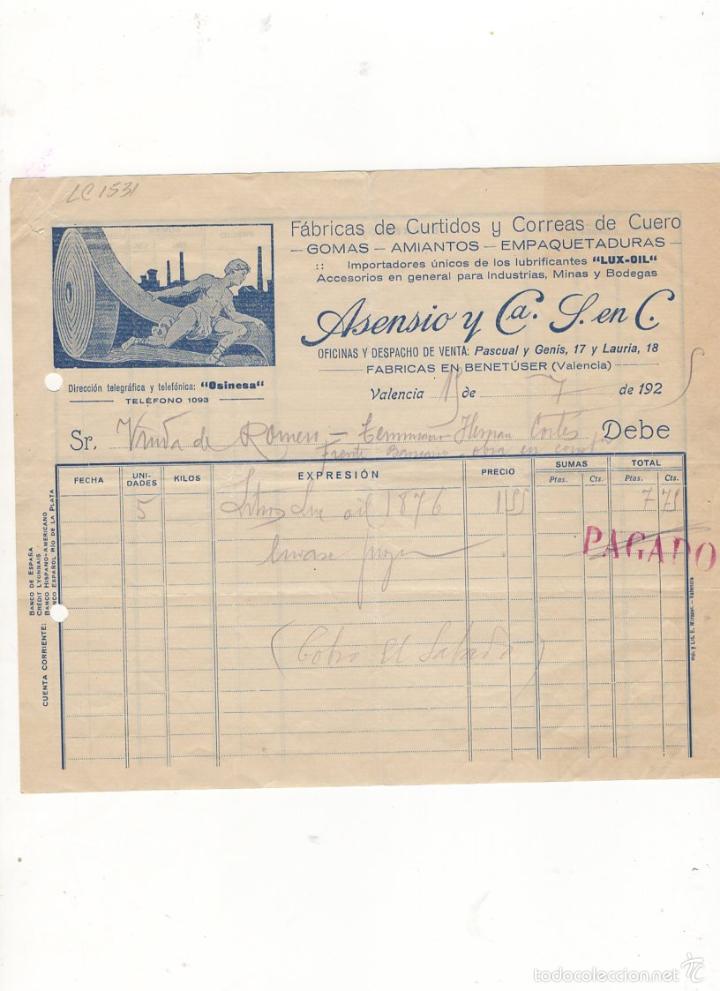 LC 1531
Fábricas de Curtidos y Correas de Cuero
— GOMAS — AMIANTOS — EMPAQUETADURAS —
:: Importadores únicos de los lubrificantes "LUX-OIL"
Accesorios en general para Industrias, Minas y Bodegas
Asensio y Cª. S. en C.
OFICINAS Y DESPACHO DE VENTA: Pascual y Genis, 17 y Lauria, 18
FABRICAS EN BENETÚSER (Valencia)
Dirección telegráfica y telefónica: "Osinesa"
TELÉFONO 1093
Valencia 15 de 7 de 1925
Sr. Viuda de Romero — Hernan Cortés Debe
Frente obra en
FECHA UNIDADES KILOS EXPRESIÓN PRECIO SUMAS Ptas. Cts. TOTAL Ptas. Cts.
5 Litros Lux oil 1876 1,55 7 75
envase
PAGADO
(Cobro El Sabado)
CUENTA CORRIENTE:
BANCO DE ESPAÑA
CRÉDIT LYONNAIS
BANCO HISPANO-AMERICANO
BANCO ESPAÑOL RÍO DE LA PLATA
todocoleccion.net